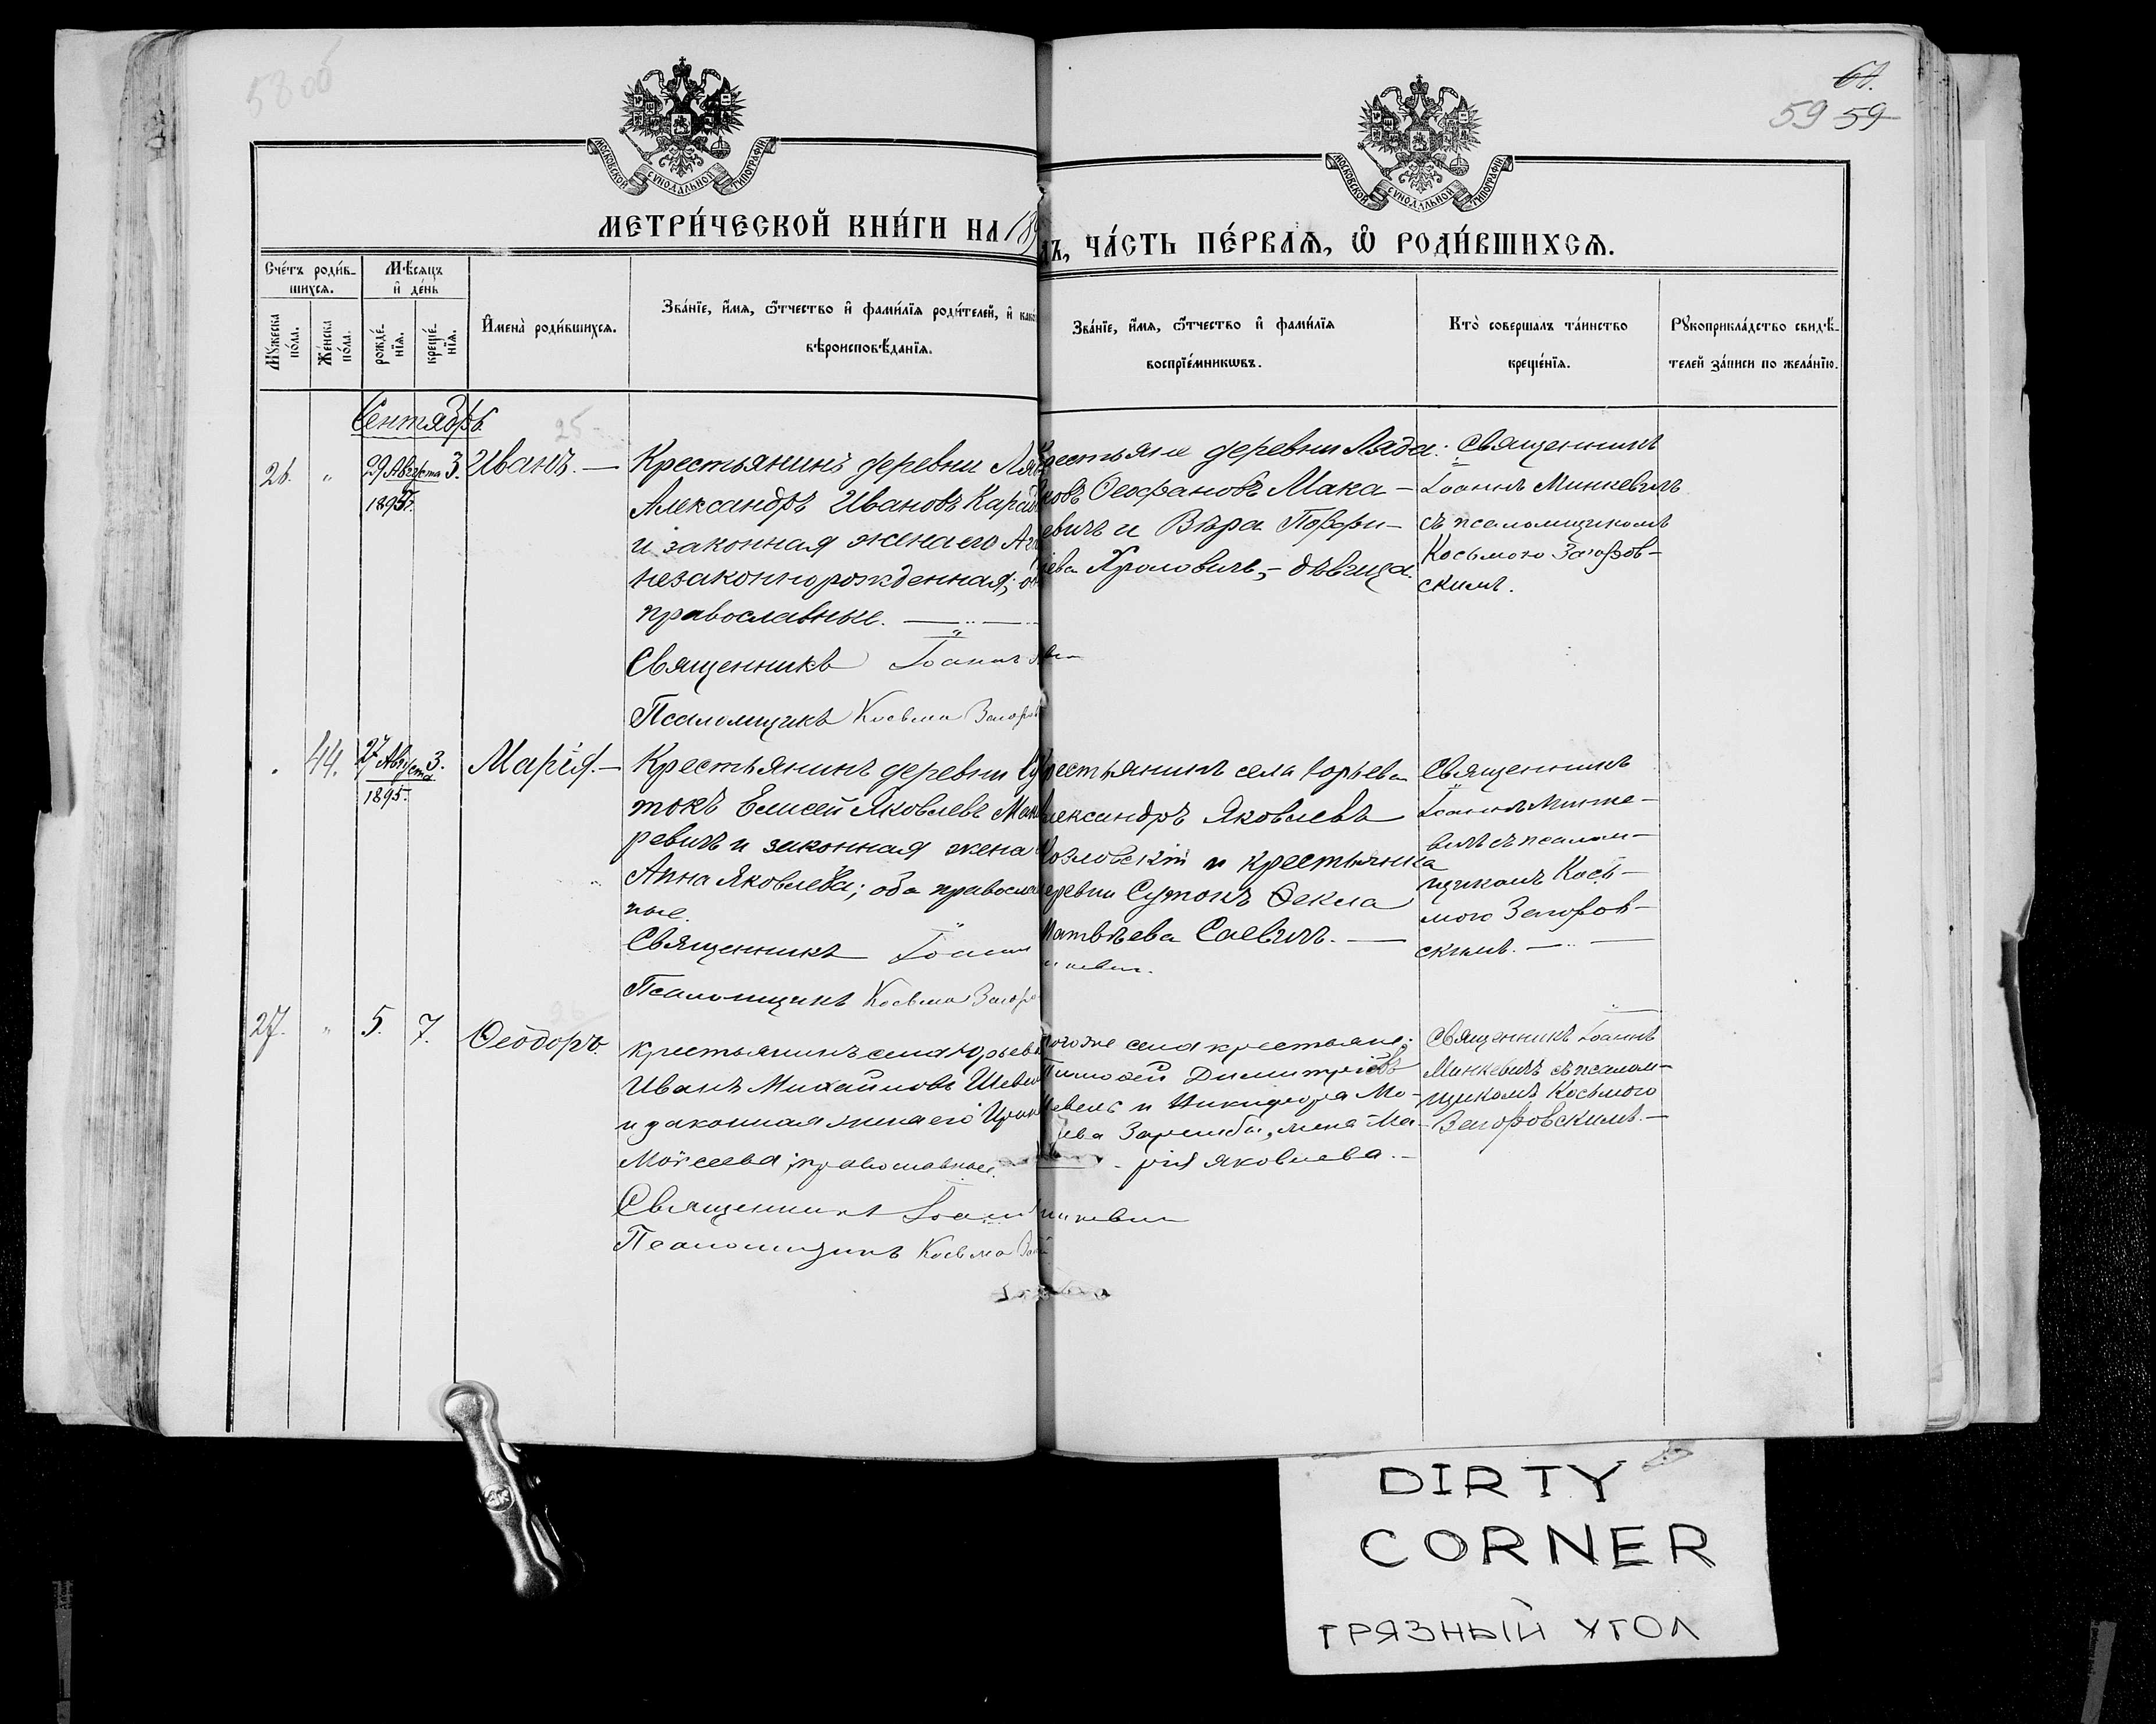 58об
67.
59 59
МОСКОВСКОЙ СУНОДАЛЬНОЙ ТИПОГРАФІИ
МОСКОВСКОЙ СУНОДАЛЬНОЙ ТИПОГРАФІИ
МЕТРИ́ЧЕСКОЙ КНИ́ГИ НА 189
ЧА́СТЬ ПЕ́РВАѦ, Ѡ҆ РОДИ́ВШИХСѦ.
Сче́тъ роди́в-
шихсѧ.
Мѣсяцъ
и҆ де́нь
Мꙋжеска
по́ла.
Же́нска
по́ла.
рожде́-
нїѧ.
креще́-
нїѧ.
И҆мена̀ роди́вшихсѧ.
Зва́нїе, и҆́мѧ, ѻ҆́тчество и҆ фами́лїѧ роди́телей, и҆
вѣроисповѣ́данїѧ.
Зва́нїе, и҆́мѧ, ѻ҆́тчество и҆ фами́лїѧ
воспрїе́мникωвъ.
Кто̀ совершалъ та́инство
креще́нїѧ.
Рꙋкоприкла́дство свидѣ́-
телей за́писи по жела́нїю.
Сентябрь.
25
26. " 29 Августа 3. Иванъ. —
1895
Крестьянинъ деревни
Александръ Ивановъ
и законная жена его
незаконнорожденная;
православные.
Священникъ Іоаннъ
Псаломщикъ Косьма
рестьяне деревни Ляда:
Ѳеофановъ Мака-
евичъ и Вѣра Порфи-
ева Хроловичъ,- дѣвица.
Священникъ
Іоаннъ Минкевичъ
съ псаломщикомъ
Косьмою Загоров-
скимъ.
44. 27 Августа 3. Марія. —
1895.
Крестьянинъ деревни Су
токъ Елисей Яковлевъ Мака
ревичъ и законная жена
Анна Яковлева; оба православ
ные.
Священникъ Іоаннъ
Псаломщикъ Косьма
рестьянинъ села Юрьева
лександръ Яковлевъ
озловскій и крестьянка
еревни Сутокъ Ѳекла
Матвѣева Саевичъ. —
нкевич.
Священникъ
Іоаннъ Минке-
вичъ съ псалом-
щикомъ Кось-
мою Загоров-
скимъ. —
26
27. " 5. 7. Ѳеодоръ.
крестьянинъ села Юрьева
Иванъ Михайловъ
и законная жена его
Моисеева; православные.
Священникъ Іоаннъ
Псаломщикъ Косьма
тогоже села крестьяне:
Тимоѳей Димитріевъ
и Никифора Мо-
ева Зарембы, жена Ма-
рія Яковлева. —
нкевич
Священникъ Іоаннъ
Минкевичъ съ псалом-
щикомъ Косьмою
Загоровскимъ. —
DIRTY
CORNER
ГРЯЗНЫЙ УГОЛ